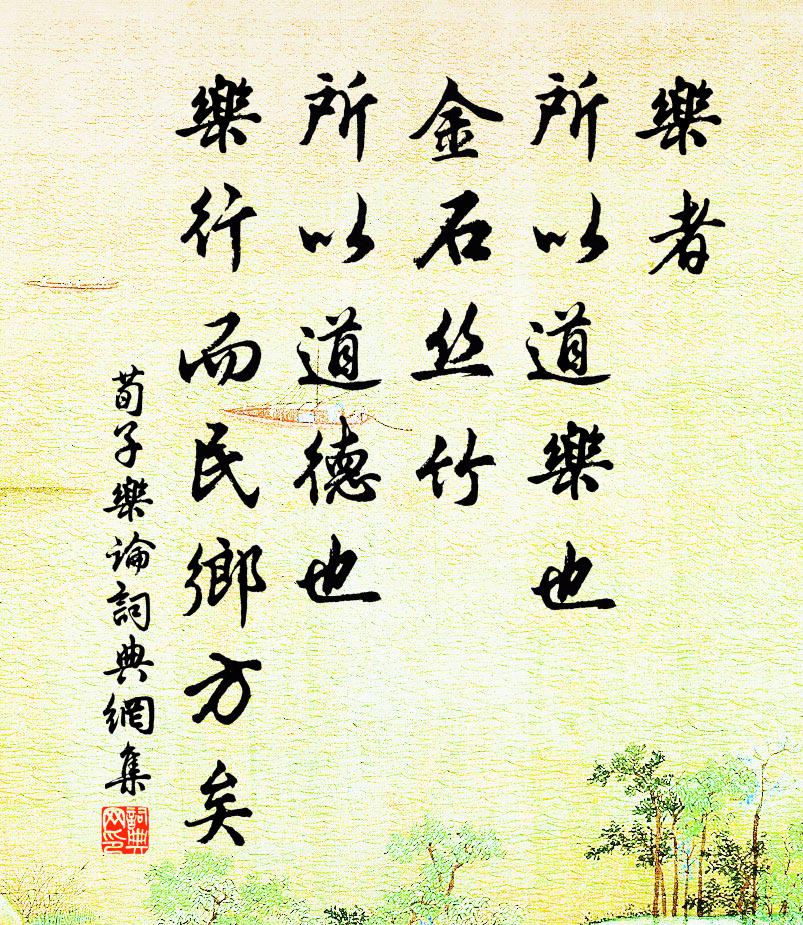 樂者
所以道樂也
金石丝竹
所以道德也
樂行而民鄉方矣
荀子樂論詞典網集
詞典网印